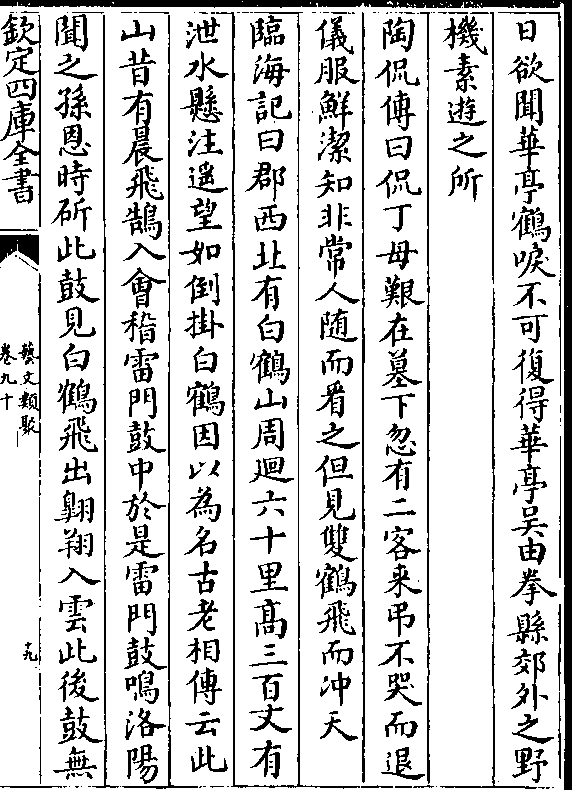 日欲聞華亭鶴唳不可復得華亭吳由拳縣郊外之野
機素遊之所
陶侃傳曰侃丁母艱在墓下忽有二客来弔不哭而退
儀服鮮潔知非常人随而看之但見雙鶴飛而冲天
臨海記曰郡西北有白鶴山周迴六十里髙三百丈有
泄水懸注遥望如倒掛白鶴因以為名古老相傳云此
山昔有晨飛鵠入會稽雷門鼓中於是雷門鼓鳴洛陽
聞之孫恩時斫此鼓見白鶴飛出翺翔入雲此後鼓無
欽定四庫全書
藝文類聚
卷九十
十九